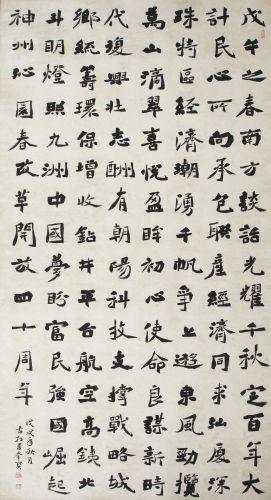 戊午之春南方談話光耀千秋定百年大
計民心所向承包聯產經濟同求汕厦深
珠特區經濟潮湧千帆爭上遊東風勁攬
萬山滴翠喜悅盈眸初心使命良謀新時
代復興壯志酬有朝陽科技支撐戰略城
鄉統籌環保增收鉆井平台航空高鐵北
斗明燈照九洲中國夢盼富民強國崛起
神州沁園春改革開放四十周年
戊戌年秋月